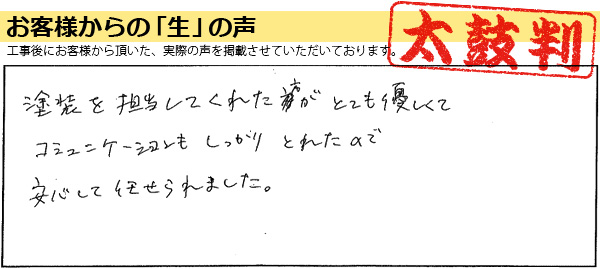 お客様からの「生」の声
工事後にお客様から頂いた、実際の声を掲載させていただいております。
太鼓判
塗装を担当してくれた方がとても優しくて
コミュニケーションもしっかりとれたので
安心して任せられました。